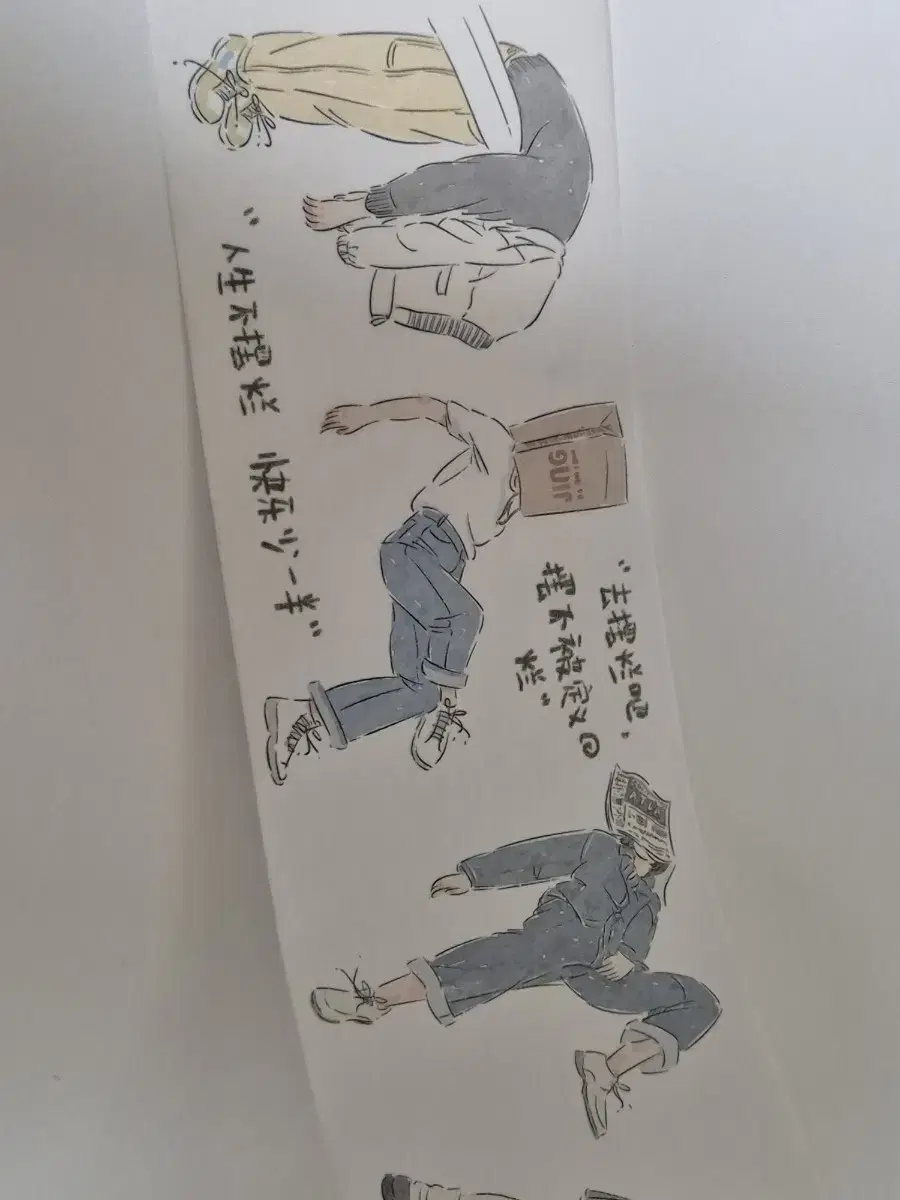 “人生不摆烂 快乐少一半”
“去摆烂吧，
摆不被定义の
烂”